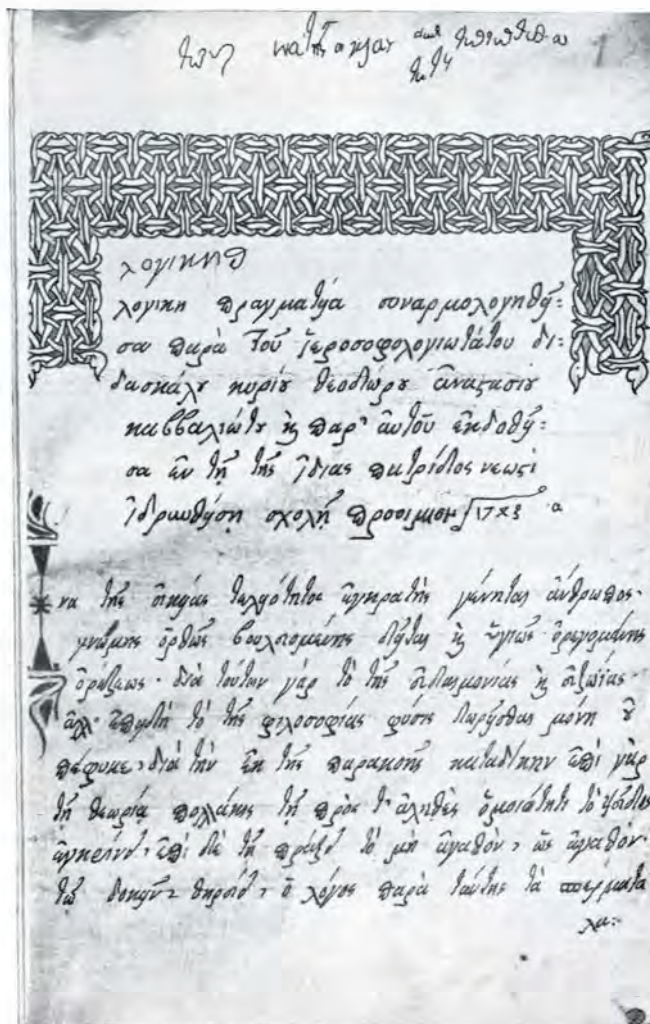 λογικη
λογικὴ πραγματεία συναρμολογηθεῖ:
σα παρὰ τοῦ ἱεροσοφολογιωτάτου δι:
δασκάλου κυρίου θεοδώρου ἀναστασίου
καββαλιώτου καὶ παρ' αὐτοῦ ἐκδοθεῖ:
σα ἐν τῇ τῆς ἰδίας πατρίδος νεωστὶ
ἱδρυνθείσῃ σχολῇ προοίμιον
να τῆς οἰκείας τελειότητος ἐγκρατὴς γένηται ἄνθρωπος·
γνώμης ὀρθῶς βουλευομένης δεῖται καὶ ὑγιῶς ὀρεγομένης
ὀρέξεως· διὰ τούτων γὰρ τὸ τῆς εὐδαιμονίας καὶ εὐζωΐας·
ἀλλ' ἐπειδὴ τὸ τῆς φιλοσοφίας φύσις μόνη οὐ
πέφυκε, διὰ τὴν ἐκ τῆς παρακοῆς καταδίκην ἐπὶ γὰρ
τῇ θεωρίᾳ πολλάκις τῇ πρὸς τ' ἀληθὲς ὁμοιότητι τὸ ψεῦδος
ἐπὶ δὲ τῇ πράξει τὸ μὴ ἀγαθὸν, ὡς ἀγαθὸν·
τῷ δοκεῖν ὁ λόγος παρὰ ταύτης τὰ σπέρματα
λα: